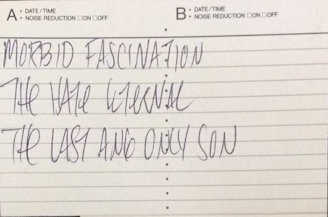 A • DATE/TIME
• NOISE REDUCTION □ON □OFF
B • DATE/TIME
• NOISE REDUCTION □ON □OFF
MORBID FASCINATION
THE HATE ETERNAL
THE LAST AND ONLY SON